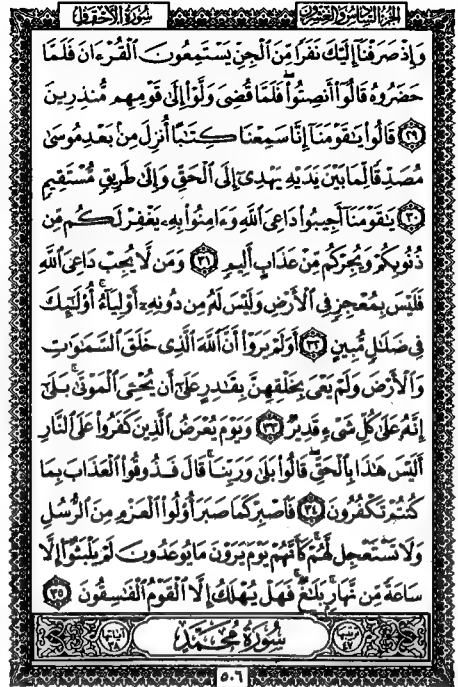 الجزء السادس والعشرون سورة الأحقاف
وَإِذْ صَرَفْنَآ إِلَيْكَ نَفَرًا مِّنَ ٱلْجِنِّ يَسْتَمِعُونَ ٱلْقُرْءَانَ فَلَمَّا
حَضَرُوهُ قَالُوٓا۟ أَنصِتُوا۟ ۖ فَلَمَّا قُضِىَ وَلَّوْا۟ إِلَىٰ قَوْمِهِم مُّنذِرِينَ
٢٩ قَالُوا۟ يَـٰقَوْمَنَآ إِنَّا سَمِعْنَا كِتَـٰبًا أُنزِلَ مِنۢ بَعْدِ مُوسَىٰ
مُصَدِّقًا لِّمَا بَيْنَ يَدَيْهِ يَهْدِىٓ إِلَى ٱلْحَقِّ وَإِلَىٰ طَرِيقٍ مُّسْتَقِيمٍ
٣٠ يَـٰقَوْمَنَآ أَجِيبُوا۟ دَاعِىَ ٱللَّهِ وَءَامِنُوا۟ بِهِۦ يَغْفِرْ لَكُم مِّن
ذُنُوبِكُمْ وَيُجِرْكُم مِّنْ عَذَابٍ أَلِيمٍ ٣١ وَمَن لَّا يُجِبْ دَاعِىَ ٱللَّهِ
فَلَيْسَ بِمُعْجِزٍ فِى ٱلْأَرْضِ وَلَيْسَ لَهُۥ مِن دُونِهِۦٓ أَوْلِيَآءُ ۚ أُو۟لَـٰٓئِكَ
فِى ضَلَـٰلٍ مُّبِينٍ ٣٢ أَوَلَمْ يَرَوْا۟ أَنَّ ٱللَّهَ ٱلَّذِى خَلَقَ ٱلسَّمَـٰوَٰتِ
وَٱلْأَرْضَ وَلَمْ يَعْىَ بِخَلْقِهِنَّ بِقَـٰدِرٍ عَلَىٰٓ أَن يُحْـِۧىَ ٱلْمَوْتَىٰ ۚ بَلَىٰٓ
إِنَّهُۥ عَلَىٰ كُلِّ شَىْءٍ قَدِيرٌ ٣٣ وَيَوْمَ يُعْرَضُ ٱلَّذِينَ كَفَرُوا۟ عَلَى ٱلنَّارِ
أَلَيْسَ هَـٰذَا بِٱلْحَقِّ ۖ قَالُوا۟ بَلَىٰ وَرَبِّنَا ۚ قَالَ فَذُوقُوا۟ ٱلْعَذَابَ بِمَا
كُنتُمْ تَكْفُرُونَ ٣٤ فَٱصْبِرْ كَمَا صَبَرَ أُو۟لُوا۟ ٱلْعَزْمِ مِنَ ٱلرُّسُلِ
وَلَا تَسْتَعْجِل لَّهُمْ ۚ كَأَنَّهُمْ يَوْمَ يَرَوْنَ مَا يُوعَدُونَ لَمْ يَلْبَثُوٓا۟ إِلَّا
سَاعَةً مِّن نَّهَارٍۭ ۚ بَلَـٰغٌ ۚ فَهَلْ يُهْلَكُ إِلَّا ٱلْقَوْمُ ٱلْفَـٰسِقُونَ ٣٥
ترتيبها ٤٧ سُورَةُ مُحَمَّدٍ آياتها ٣٨
٥٠٦